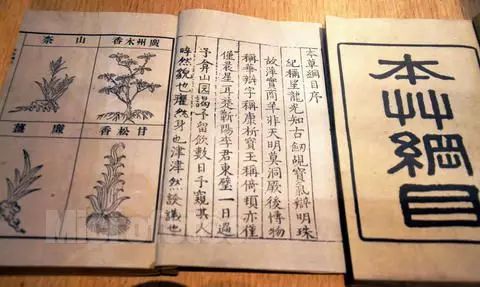 本艸綱目
本草綱目序
紀稱望龍光知古劍覘寶氣辯明珠
故萍實商羊非天明莫洞厥後博物
稱華辯字稱康析寶玉稱倚頓亦僅
僅晨星耳楚蘄陽李君東璧一日過
予弇山園謁予留飲數日予窺其人
睟然貌也癯然身也津津然談議也
廣州木香
山柰
甘松香
廉薑